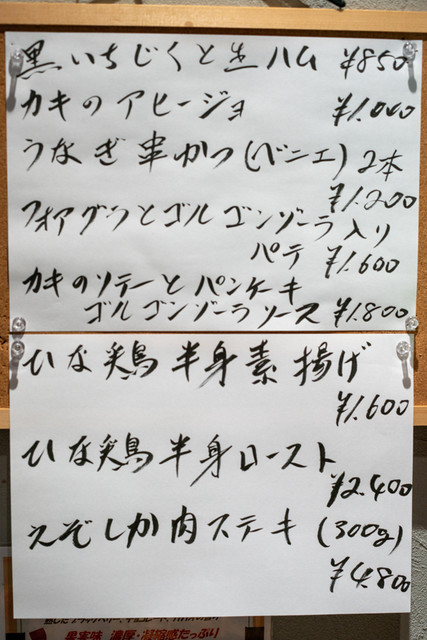 黒いちじくと生ハム ¥850
カキのアヒージョ ¥1.000
うなぎ串かつ(ベニエ)2本
¥1.200
フォアグラとゴルゴンゾーラ入り
パテ ¥1.600
カキのソテーとパンケーキ
ゴルゴンゾーラソース ¥1.800
ひな鶏半身素揚げ
¥1.600
ひな鶏半身ロースト
¥2.400
えぞしか肉ステーキ(300g)
¥4.800
果実味 濃厚・凝縮感たっぷり